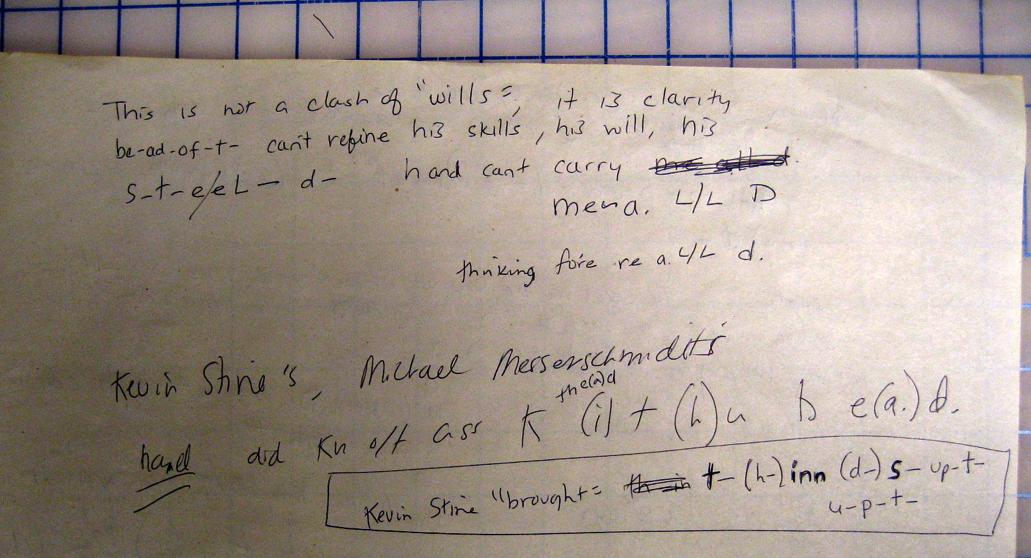 This is not a clash of "wills=, it is clarity
be-ad-of-t- can't refine his skills, his will, his
s-t-e/eL- d- hand cant carry
mena. L/L D
thinking fore re a. L/L d.
Kevin Stine's, Michael Messerschmidt's
the(a)d
hand did Kn off ass K (i) t (h) u b e(a.) d.
Kevin Stine "brought= t- (h-) inn (d-) s- up-t-
u-p-t-